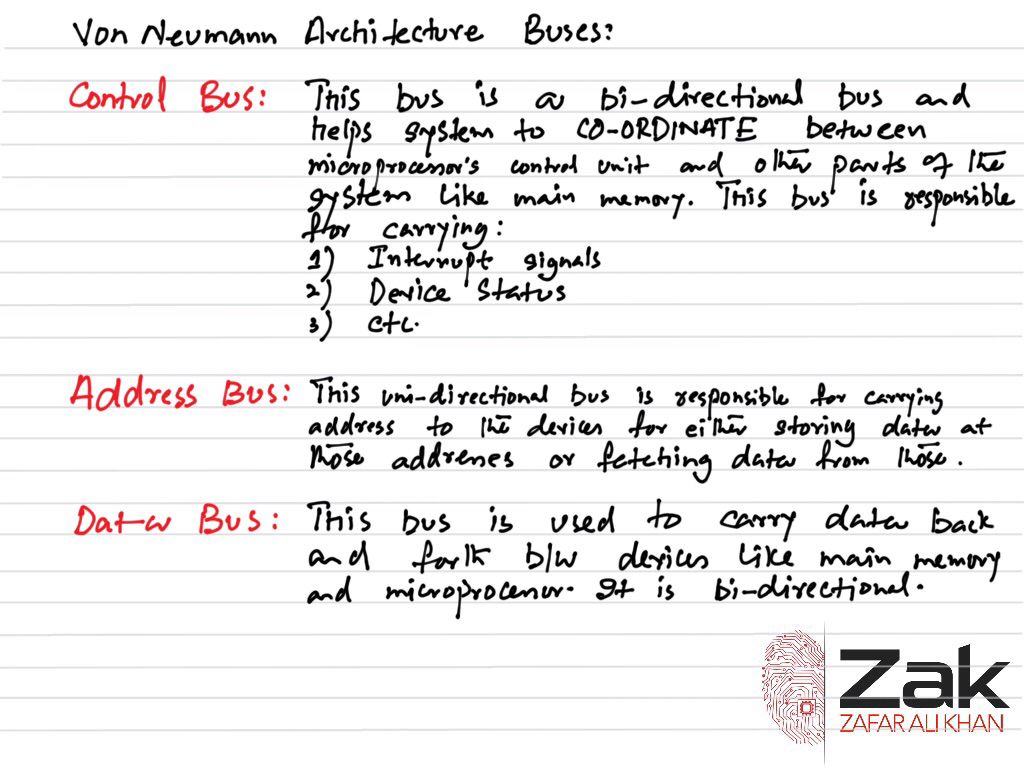 Von Neumann Architecture Buses:
Control Bus: This bus is a bi-directional bus and
helps system to CO-ORDINATE between
microprocessor's control unit and other parts of the
system like main memory. This bus is responsible
for carrying:
1) Interrupt signals
2) Device Status
3) etc.
Address Bus: This uni-directional bus is responsible for carrying
address to the devices for either storing data at
those addresses or fetching data from those.
Data Bus: This bus is used to carry data back
and forth b/w devices like main memory
and microprocessor. It is bi-directional.
Zak
ZAFAR ALI KHAN